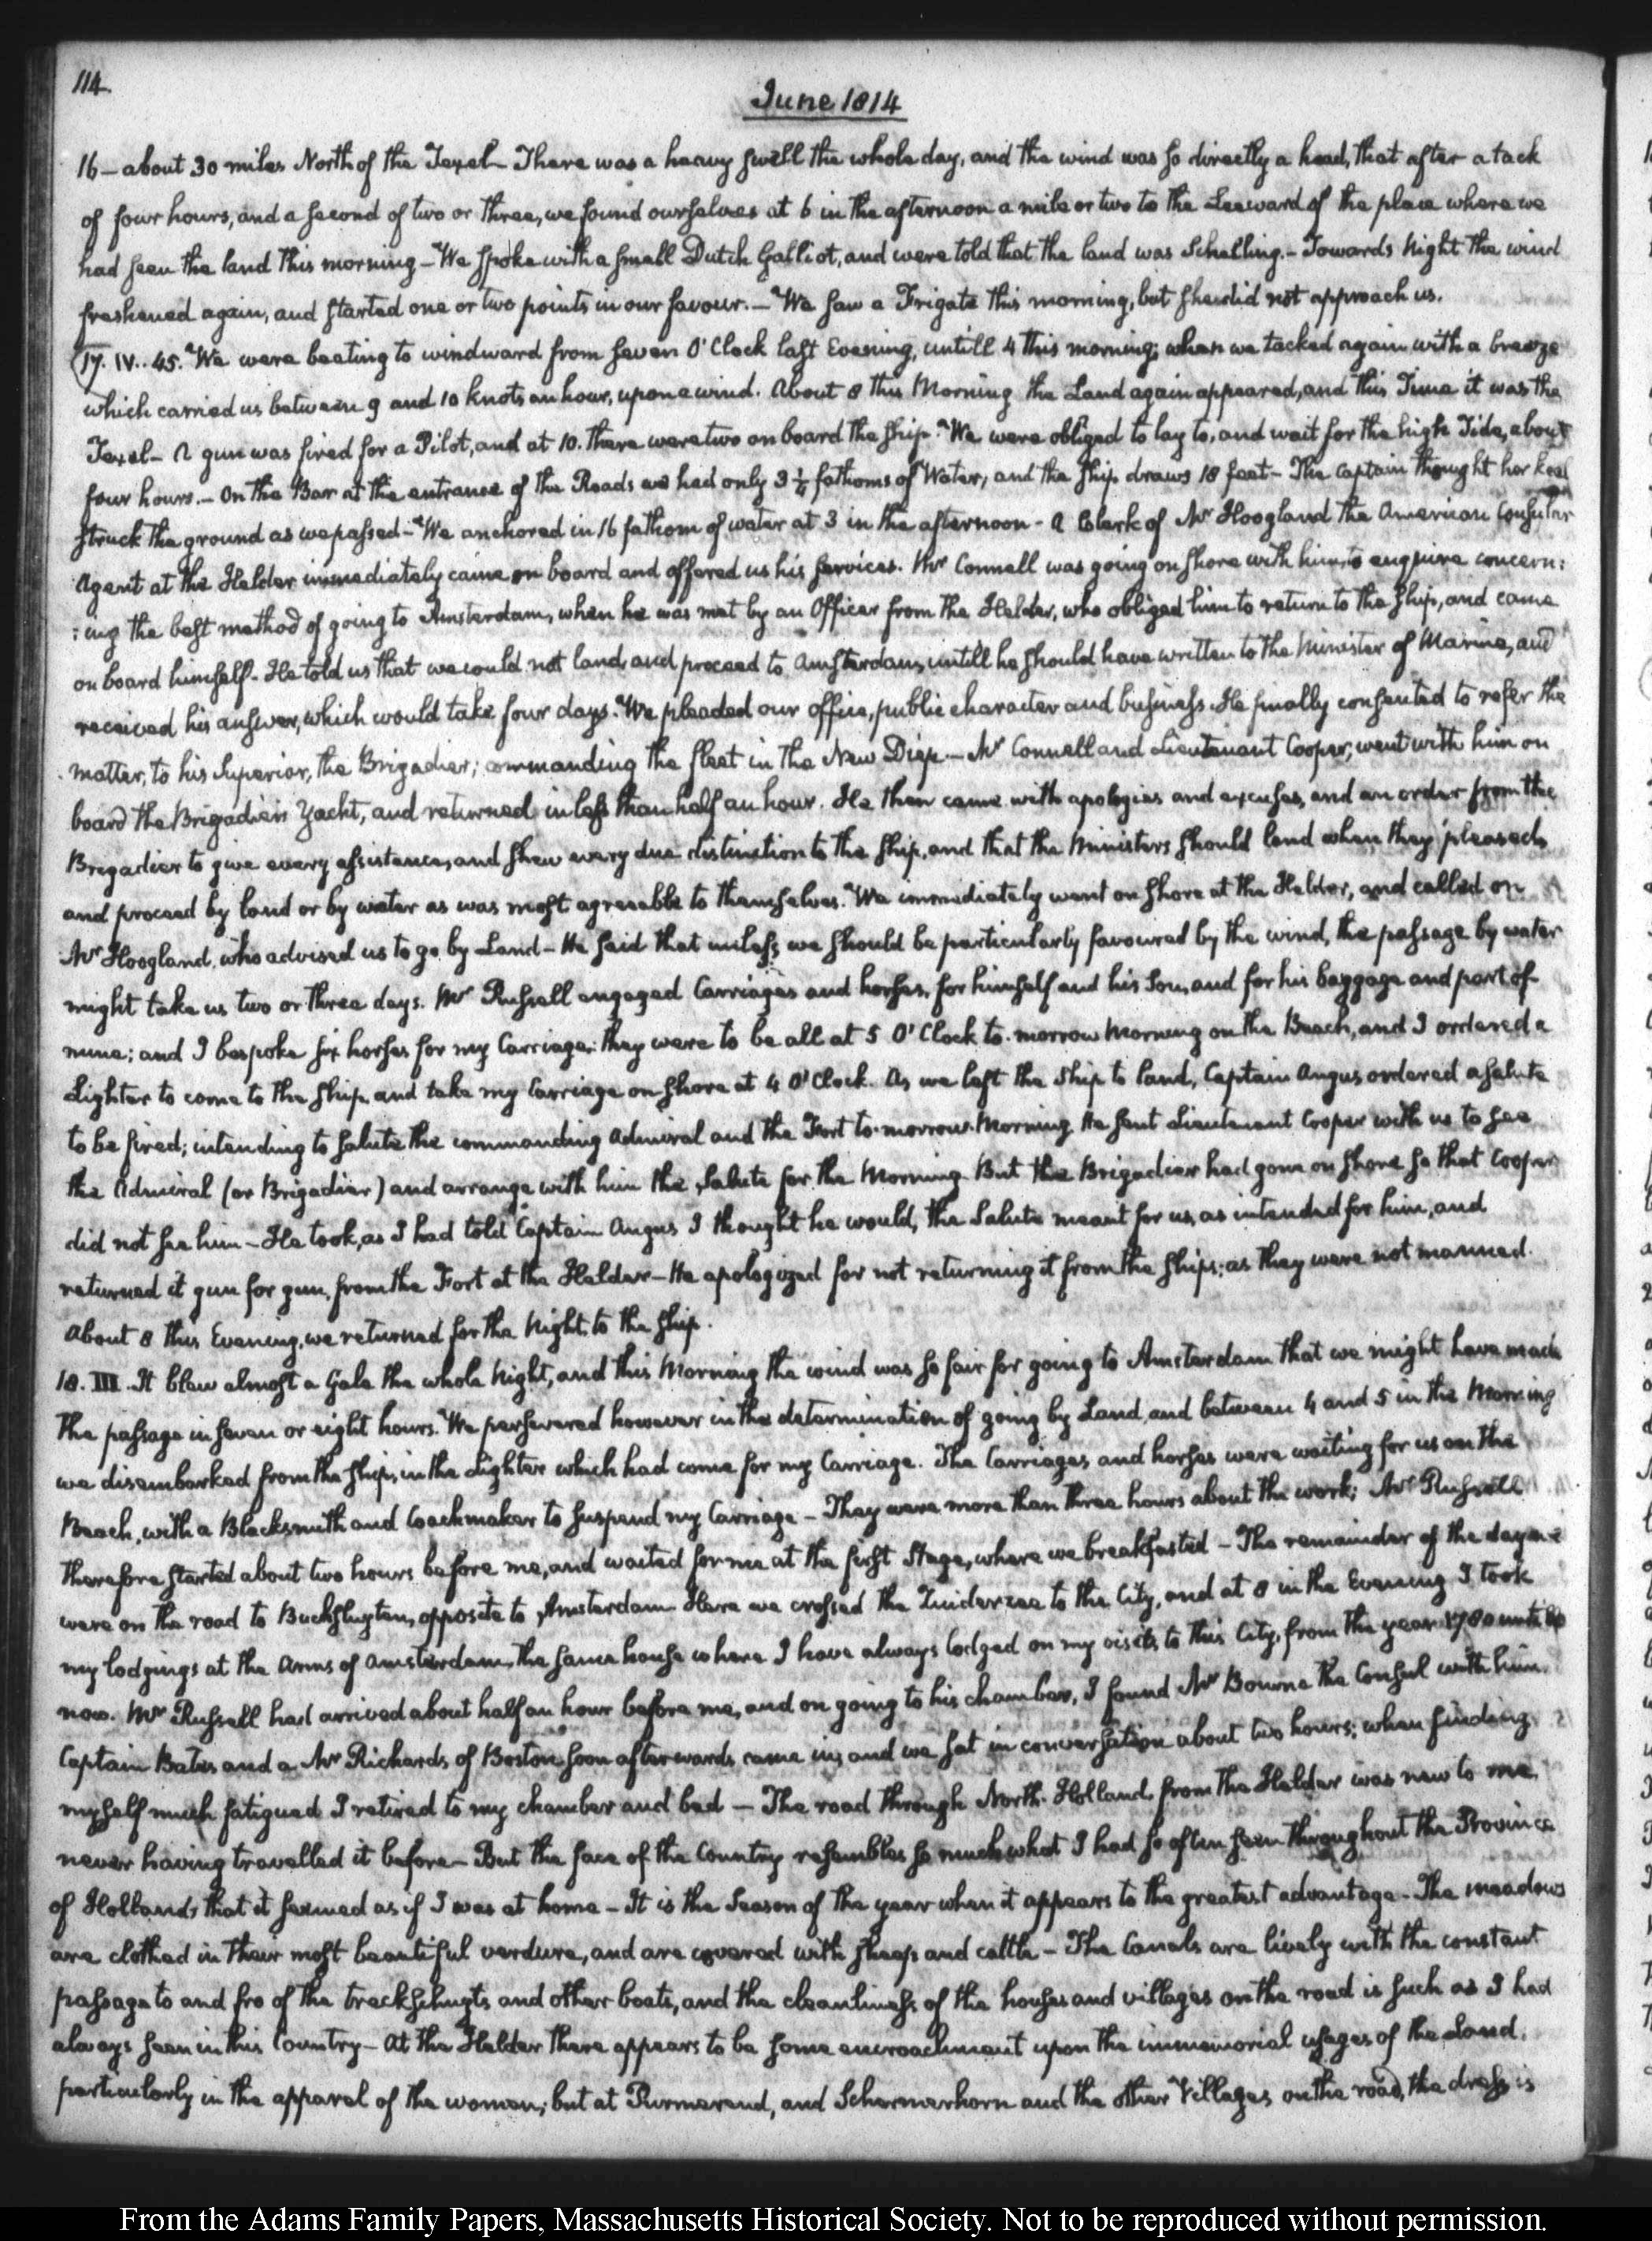 114.
June 1814
16 — about 30 miles North of the Texel — There was a heavy swell the whole day, and the wind was so directly a head, that after a tack
of four hours, and a second of two or three, we found ourselves at 6 in the afternoon a mile or two to the Leeward of the place where we
had seen the land this morning — We spoke with a small Dutch Galliot, and were told that the land was Schelling. — Towards Night the wind
freshened again, and started one or two points in our favour. — We saw a Frigate this morning, but she did not approach us.
17. IV.. 45. We were beating to windward from seven O'Clock last Evening, untill 4 this morning; when we tacked again with a breeze
which carried us between 9 and 10 knots an hour, upon a wind. About 8 this Morning the Land again appeared, and this Time it was the
Texel — A gun was fired for a Pilot, and at 10. there were two on board the ship. We were obliged to lay to, and wait for the high Tide, about
four hours. — On the Bar at the entrance of the Roads we had only 3 ¼ fathoms of Water, and the ship draws 18 feet — The Captain thought her keel
struck the ground as we passed — We anchored in 16 fathom of water at 3 in the afternoon — A Clerk of Mr Hoogland the American Consular
Agent at the Helder immediately came on board and offered us his services. Mr Connell was going on shore with him, to enquire concern:
:ing the best method of going to Amsterdam, when he was met by an Officer from the Helder, who obliged him to return to the ship, and came
on board himself. He told us that we could not land and proceed to Amsterdam, untill he should have written to the Minister of Marine, and
received his answer, which would take four days. We pleaded our office, public character and business. He finally consented to refer the
matter, to his Superior, the Brigadier; commanding the fleet in the New Diep — Mr Connell and Lieutenant Cooper, went with him on
board the Brigadier's Yacht, and returned in less than half an hour. He then came with apologies and excuses, and an order from the
Brigadier to give every assistance, and shew every due distinction to the ship, and that the Ministers should land when they pleased,
and proceed by land or by water as was most agreeable to themselves. We immediately went on shore at the Helder, and called on
Mr Hoogland, who advised us to go by Land — He said that unless we should be particularly favoured by the wind, the passage by water
might take us two or three days. Mr Russell engaged Carriages and horses, for himself and his Son, and for his baggage and part of
mine; and I bespoke six horses for my Carriage: they were to be all at 5 O'Clock to-morrow Morning on the Beach, and I ordered a
Lighter to come to the ship, and take my Carriage on shore at 4 O'Clock. As we left the Ship to land, Captain Angus ordered a salute
to be fired; intending to salute the commanding Admiral and the Fort to-morrow Morning. He sent Lieutenant Cooper with us to see
the Admiral (or Brigadier) and arrange with him the salute for the Morning. But the Brigadier had gone on shore so that Cooper
did not see him — He took, as I had told Captain Angus I thought he would, the Salute meant for us, as intended for him, and
returned it gun for gun, from the Fort at the Helder — He apologized for not returning it from the ships; as they were not manned.
About 8 this Evening, we returned for the Night to the ship.
18. III. It blew almost a Gale the whole Night, and this Morning the wind was so fair for going to Amsterdam that we might have made
the passage in seven or eight hours. We persevered however in the determination of going by Land, and between 4 and 5 in the Morning
we disembarked from the ship, in the Lighter which had come for my Carriage. The Carriages and horses were waiting for us on the
Beach, with a Blacksmith and Coachmaker to suspend my Carriage — They were more than three hours about the work; Mr Russell
therefore started about two hours before me, and waited for me at the first Stage, where we breakfasted — The remainder of the day we
were on the road to Buiksluyten, opposite to Amsterdam. Here we crossed the Zuiderzee to the City, and at 8 in the Evening I took
my lodgings at the Arms of Amsterdam, the same house where I have always lodged on my visits to this City, from the year 1780 untill
now. Mr Russell had arrived about half an hour before me, and on going to his chamber, I found Mr Bourne the Consul with him.
Captain Bates and a Mr Richards of Boston soon afterwards came in; and we sat in conversation about two hours; when finding
myself much fatigued I retired to my chamber and bed — The road through North-Holland, from the Helder was new to me,
never having travelled it before — But the face of the Country resembles so much what I had so often seen throughout the Province
of Holland, that it seemed as if I was at home — It is the Season of the year when it appears to the greatest advantage — The meadows
are clothed in their most beautiful verdure, and are covered with sheep and cattle — The Canals are lively with the constant
passage to and fro of the treckschuyts and other boats, and the cleanliness of the houses and villages on the road is such as I had
always seen in this Country — At the Helder there appears to be some encroachment upon the immemorial usages of the Land,
particularly in the apparel of the women; but at Purmerend, and Schermerhorn and the other Villages on the road, the dress is
From the Adams Family Papers, Massachusetts Historical Society. Not to be reproduced without permission.